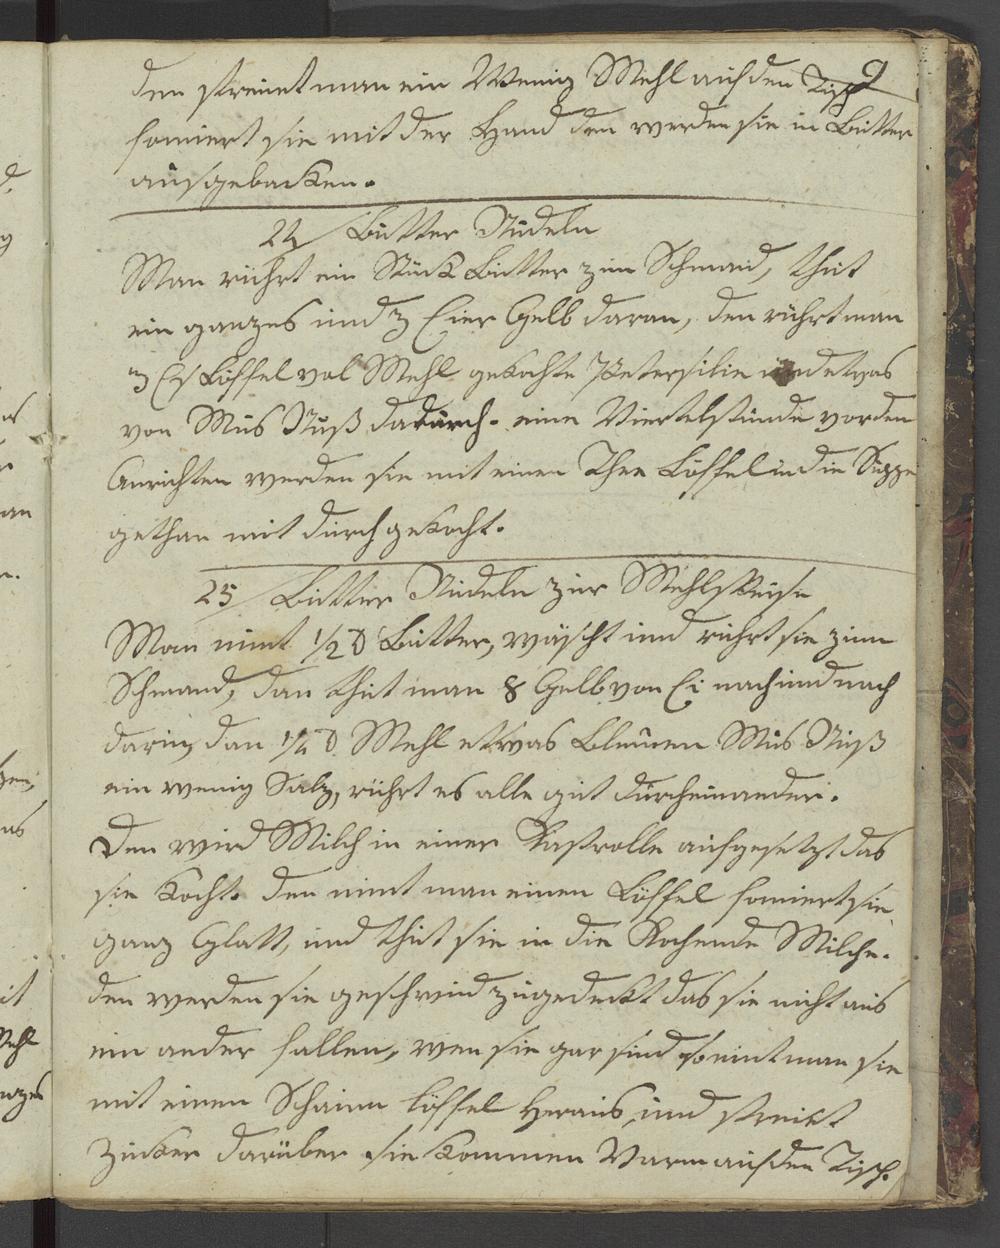 9
den streuet man ein Wenig Mehl auf den Tisch
formiert sie mit der Hand den werden sie in Butter
ausgebacken.
24 Butter Nudeln
Man rührt ein Stück Butter zum Schmand, thut
ein ganzes und 3 Eier Gelb daran, den rührt man
3 Eß Löffel vol Mehl gekochte Petersilie und etwas
von Mus Nuß dadurch. eine Viertelstunde vorden
Anrichten werden sie mit einen Thee Löffel in die Suppe
gethan mit durchgekocht.
25 Butter Nudeln zur Mehlspeise
Man nimt 1/2 ℔ Butter, wäscht und rührt sie zum
Schmand, dan thut man 8 Gelb von Ei nach und nach
darin, dan 1/4 ℔ Mehl etwas Blumen Mus Nuß
ein wenig Salz, rührt es alle gut durcheinander.
Den wird Milch in einer Kastrolle aufgesetzt das
sie Kocht. den nimt man einen Löffel formiert sie
ganz Glatt, und thut sie in die Kochende Milche.
den werden sie geschwind zugedeckt das sie nicht aus
ein ander fallen, wen sie gar sind so nimt man sie
mit einen Schaum löffel heraus, und streut
Zucker darüber sie kommen Warm auf den Tisch.